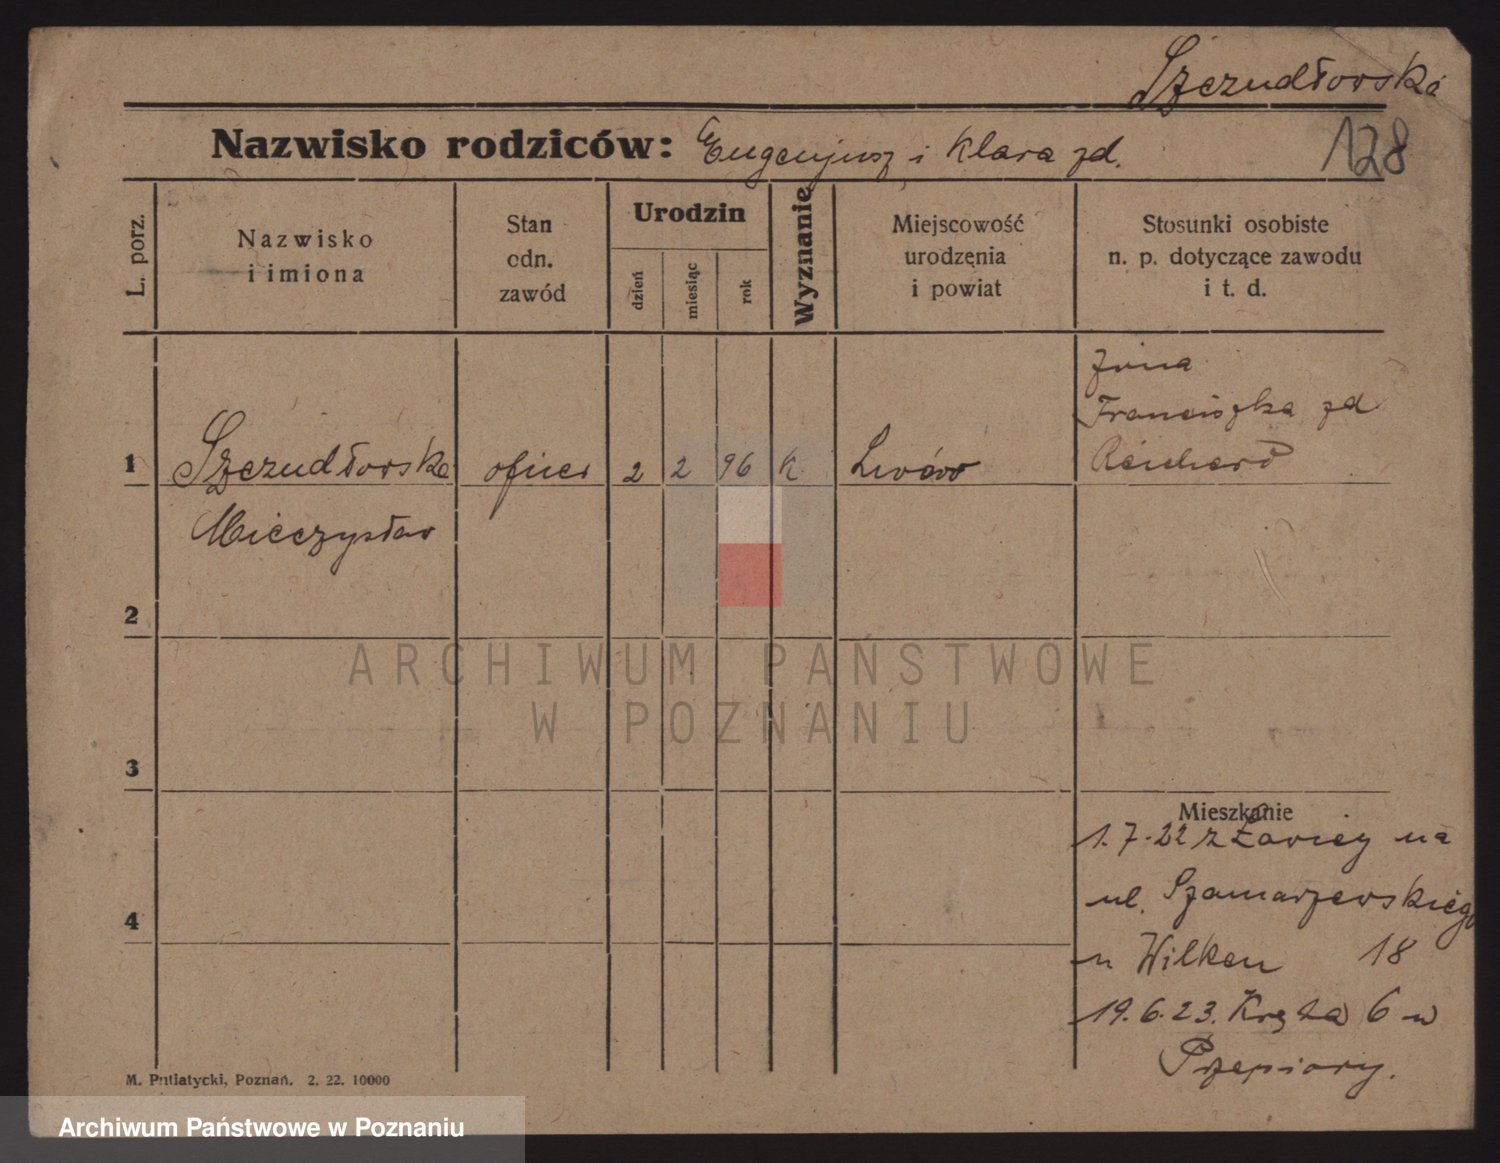 Szczudłowski
Nazwisko rodziców: Eugenjusz i Klara zd.
128
L. porz.
Nazwisko
i imiona
Stan
cdn.
zawód
Urodzin
dzień
miesiąc
rok
Wyznanie
Miejscowość
urodzenia
i powiat
Stosunki osobiste
n. p. dotyczące zawodu
i t. d.
1
Szczudłowski
Mieczysław
oficer
2
2
96
K
Lwów
żona
Franciszka zd
Reichard
2
3
4
ARCHIWUM PAŃSTWOWE
W POZNANIU
Mieszkanie
1.7.22 z Ławicy na
ul. Szamarzewskiego
u Wilken 18
19.6.23. Kręta 6 u
Przepiory.
M. Putiatycki, Poznań. 2. 22. 10000
Archiwum Państwowe w Poznaniu